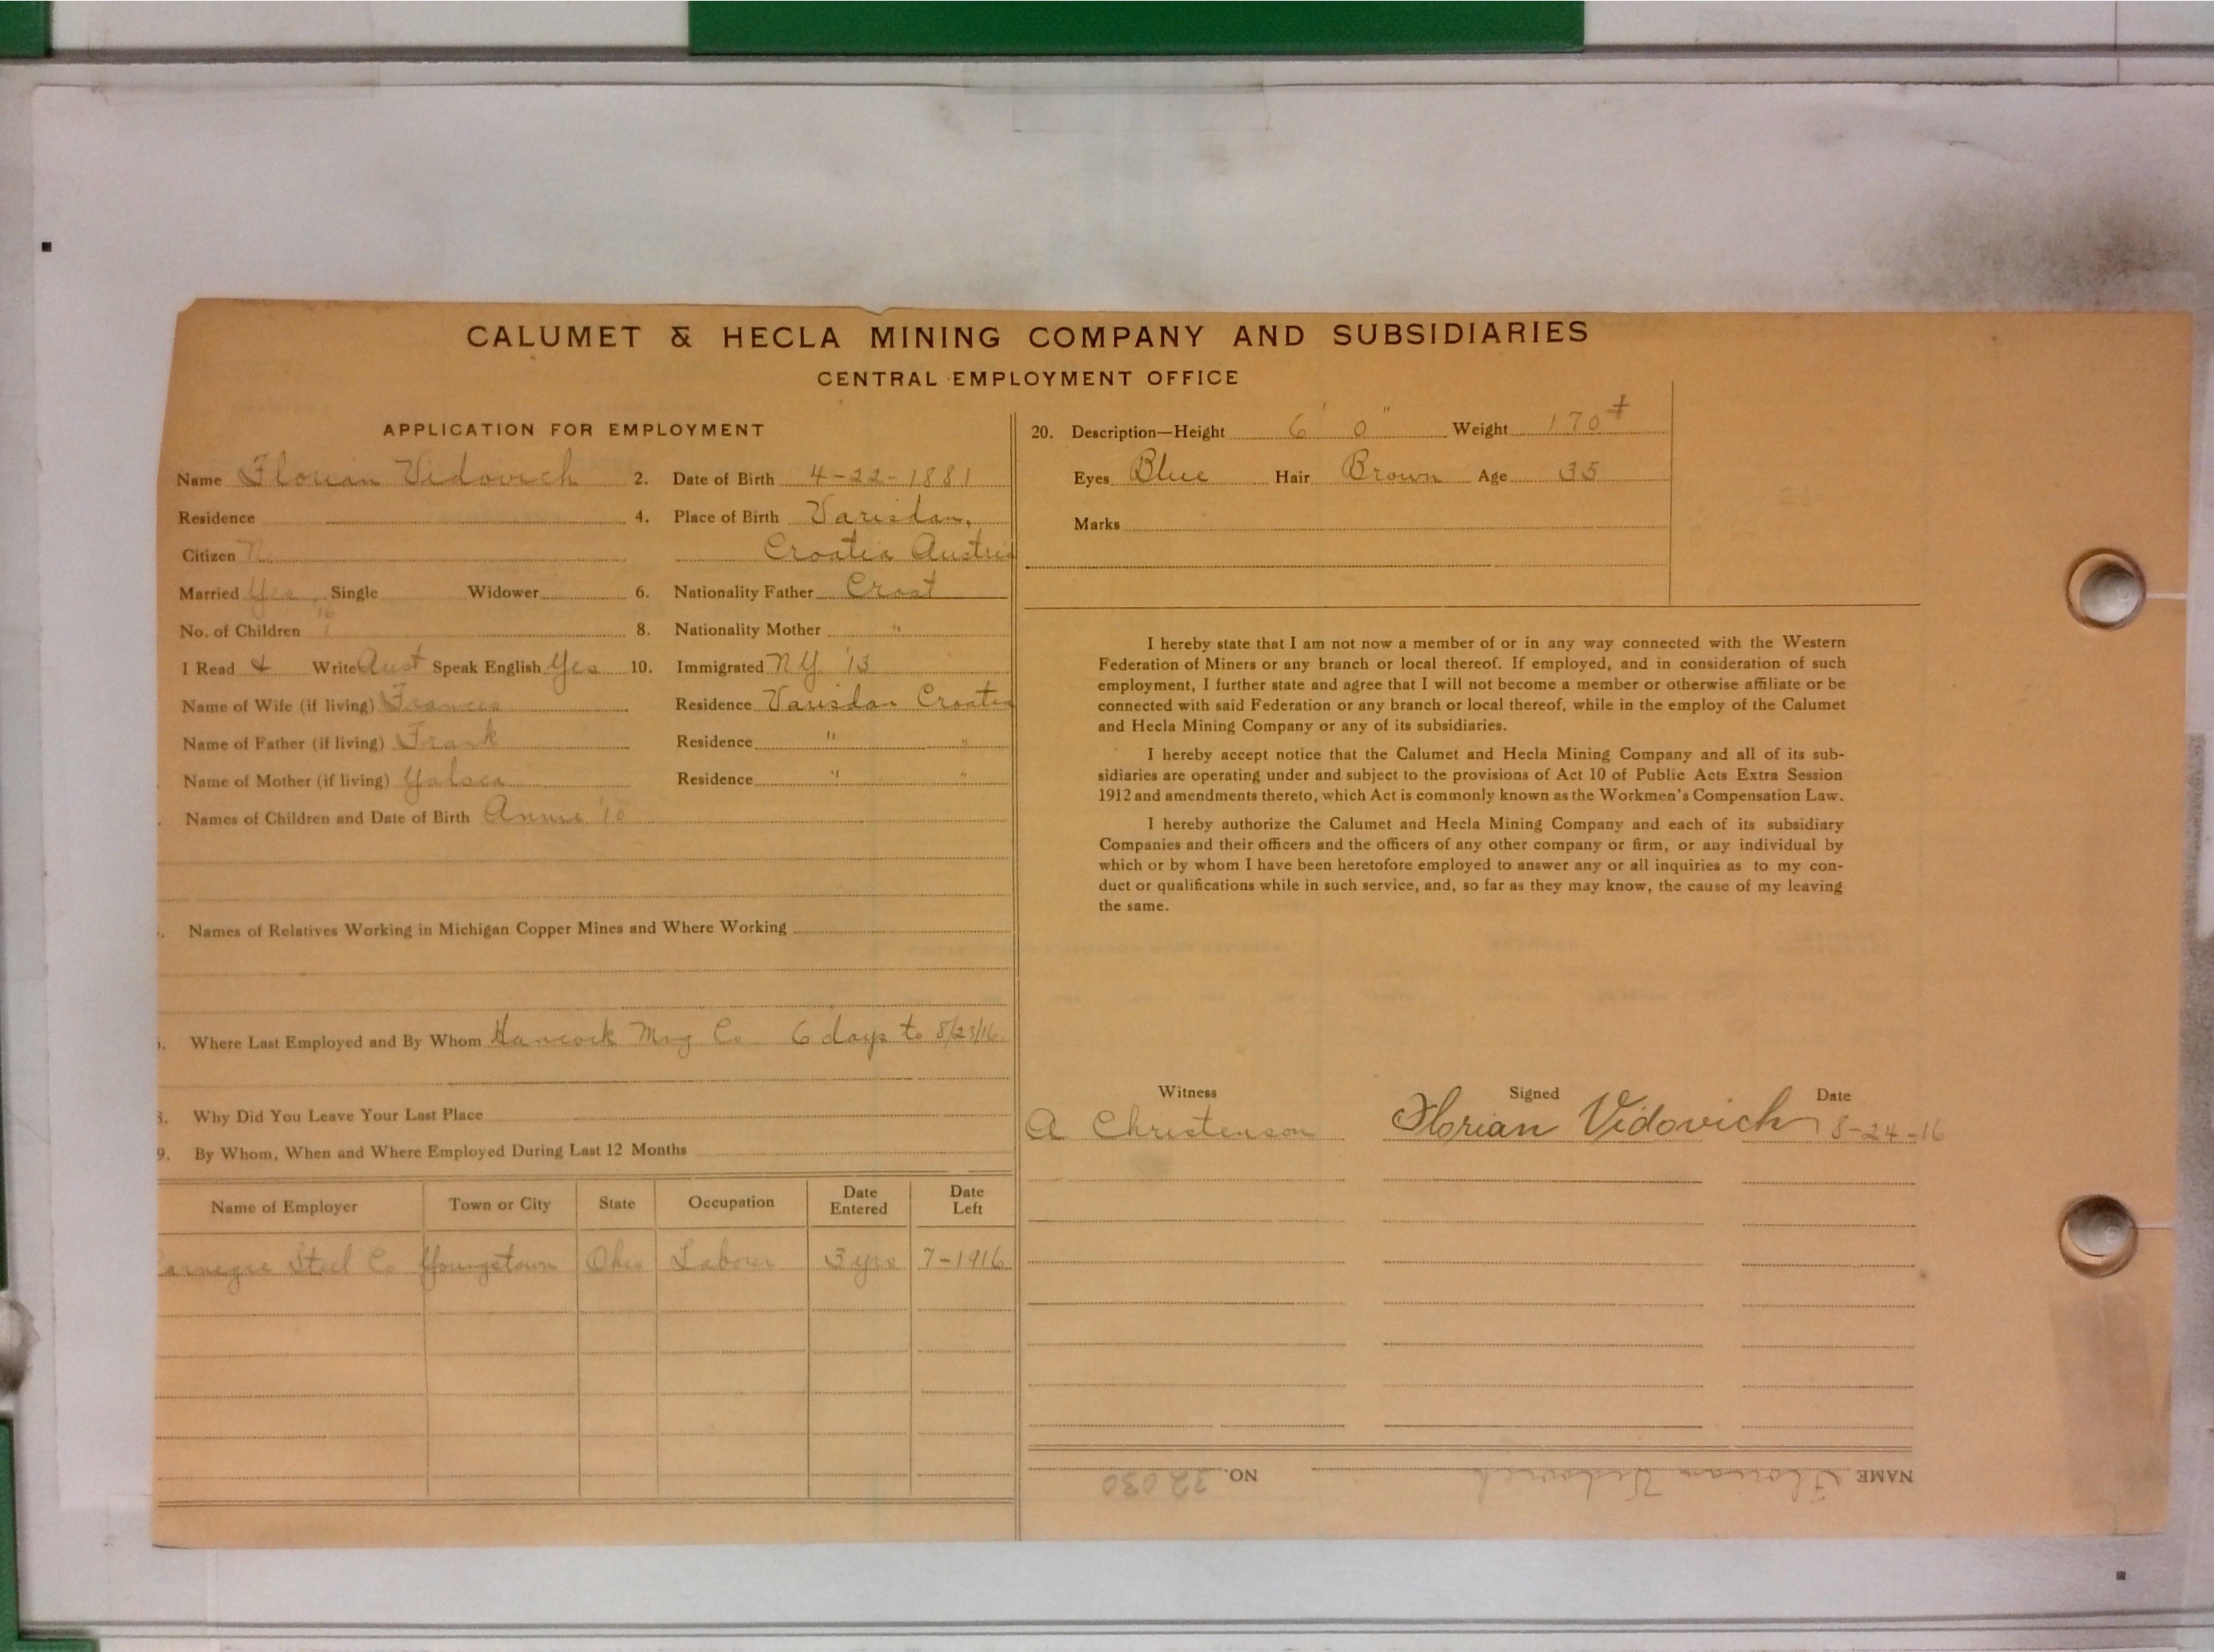 CALUMET & HECLA MINING COMPANY AND SUBSIDIARIES
CENTRAL EMPLOYMENT OFFICE
APPLICATION FOR EMPLOYMENT
Name Florian Vidovich 2. Date of Birth 4-22-1881
Residence 4. Place of Birth Varisdan,
Citizen N Croatia Austria
Married Yes '16 Single Widower 6. Nationality Father Croat
No. of Children 1 8. Nationality Mother "
I Read & Write Aust Speak English Yes 10. Immigrated N.Y. '13
Name of Wife (if living) Frances Residence Varisdan Croatia
Name of Father (if living) Frank Residence " "
Name of Mother (if living) Residence " "
Names of Children and Date of Birth Annie '10
Names of Relatives Working in Michigan Copper Mines and Where Working
Where Last Employed and By Whom Hancock Mng Co 6 days to 8/23/16.
8. Why Did You Leave Your Last Place
9. By Whom, When and Where Employed During Last 12 Months
Name of Employer Town or City State Occupation Date Entered Date Left
Carnegie Steel Co Youngstown Ohio Labour 3 yrs 7-1916
20. Description—Height 6' 0" Weight 170 +
Eyes Blue Hair Brown Age 35
Marks
I hereby state that I am not now a member of or in any way connected with the Western
Federation of Miners or any branch or local thereof. If employed, and in consideration of such
employment, I further state and agree that I will not become a member or otherwise affiliate or be
connected with said Federation or any branch or local thereof, while in the employ of the Calumet
and Hecla Mining Company or any of its subsidiaries.
I hereby accept notice that the Calumet and Hecla Mining Company and all of its sub-
sidiaries are operating under and subject to the provisions of Act 10 of Public Acts Extra Session
1912 and amendments thereto, which Act is commonly known as the Workmen's Compensation Law.
I hereby authorize the Calumet and Hecla Mining Company and each of its subsidiary
Companies and their officers and the officers of any other company or firm, or any individual by
which or by whom I have been heretofore employed to answer any or all inquiries as to my con-
duct or qualifications while in such service, and, so far as they may know, the cause of my leaving
the same.
Witness Signed Date
A Christenson Florian Vidovich 8-24-16
NAME Florian Vidovich NO. 32030